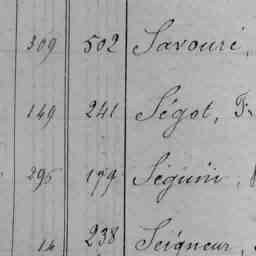 309 502 Savouré,
149 241 Ségot, Fr
295 179 Séguin,
14 238 Seigneur,